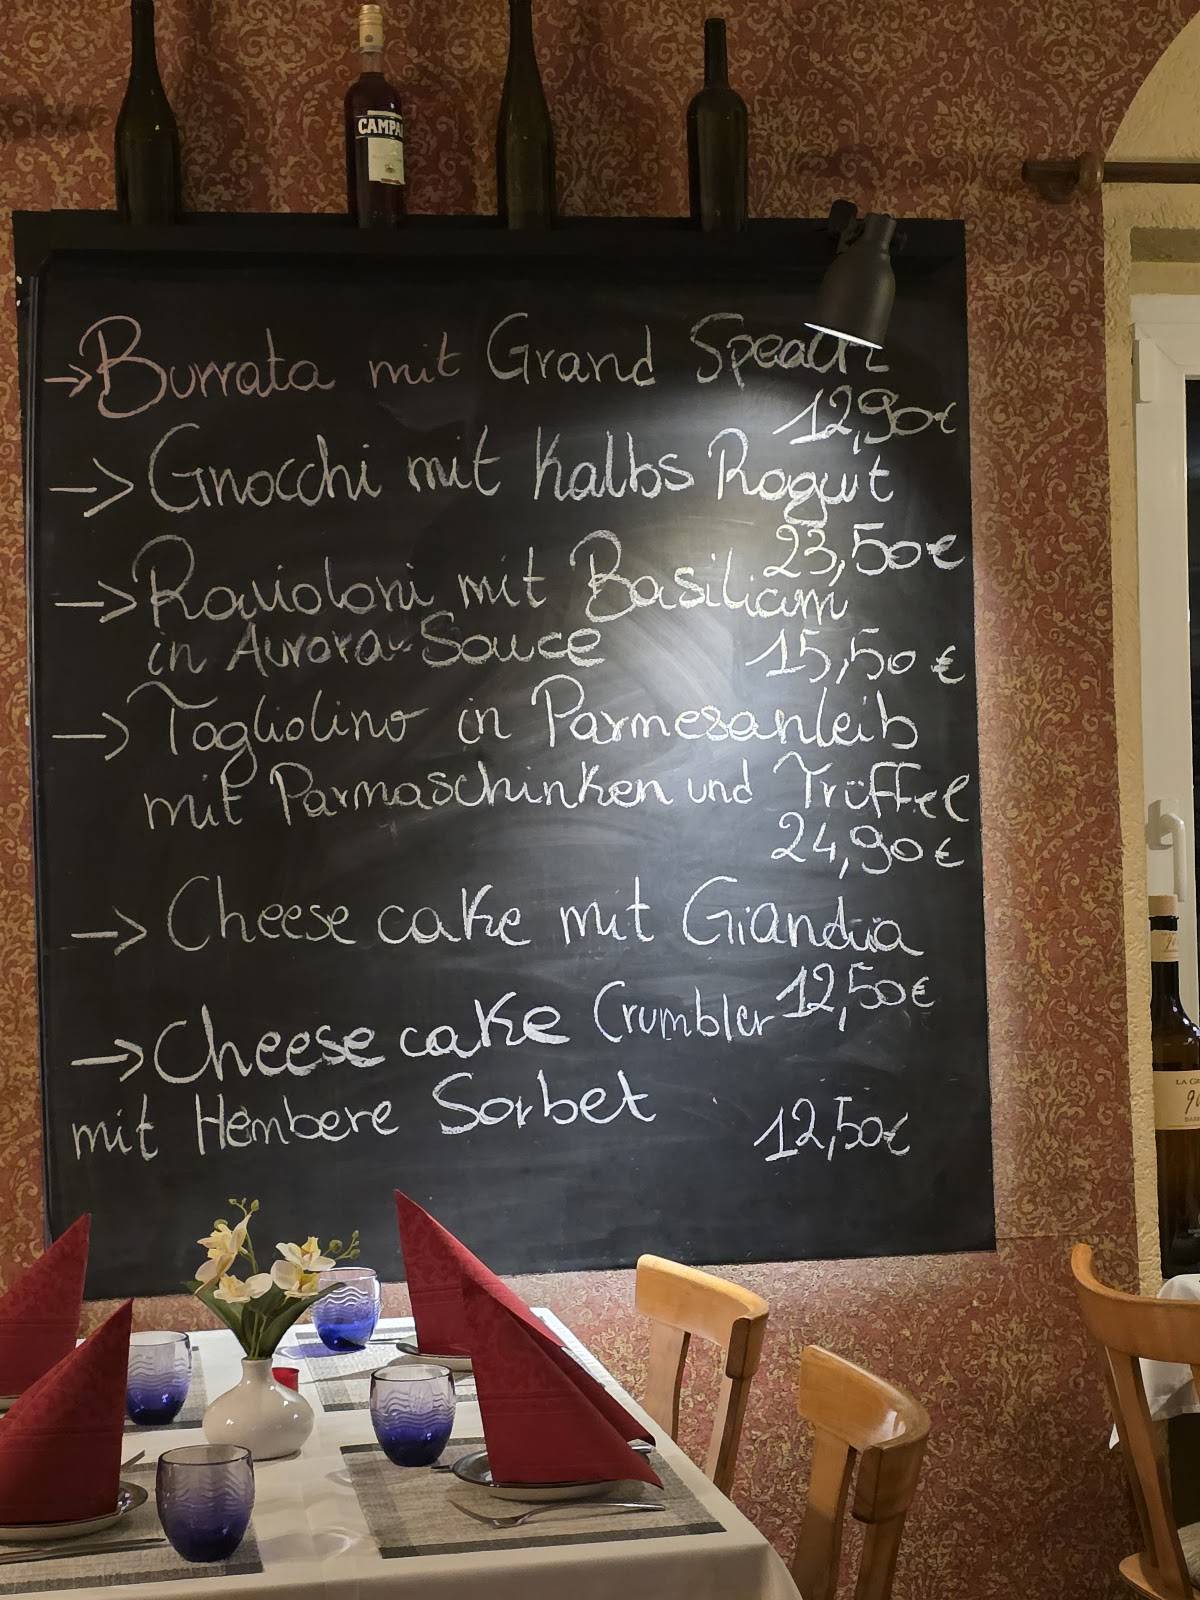 CAMPA
→ Burrata mit Grand Speach
12,90€
→ Gnocchi mit Kalbs Rogut
23,50€
→ Ravioloni mit Basilicum
in Aurora-Souce 15,50 €
→ Togliolino in Parmesanleib
mit Parmaschinken und Trüffel
24,90€
→ Cheese cake mit Gianduia
12,50€
→ Cheese cake Crumbler
mit Hembere Sorbet
12,50€